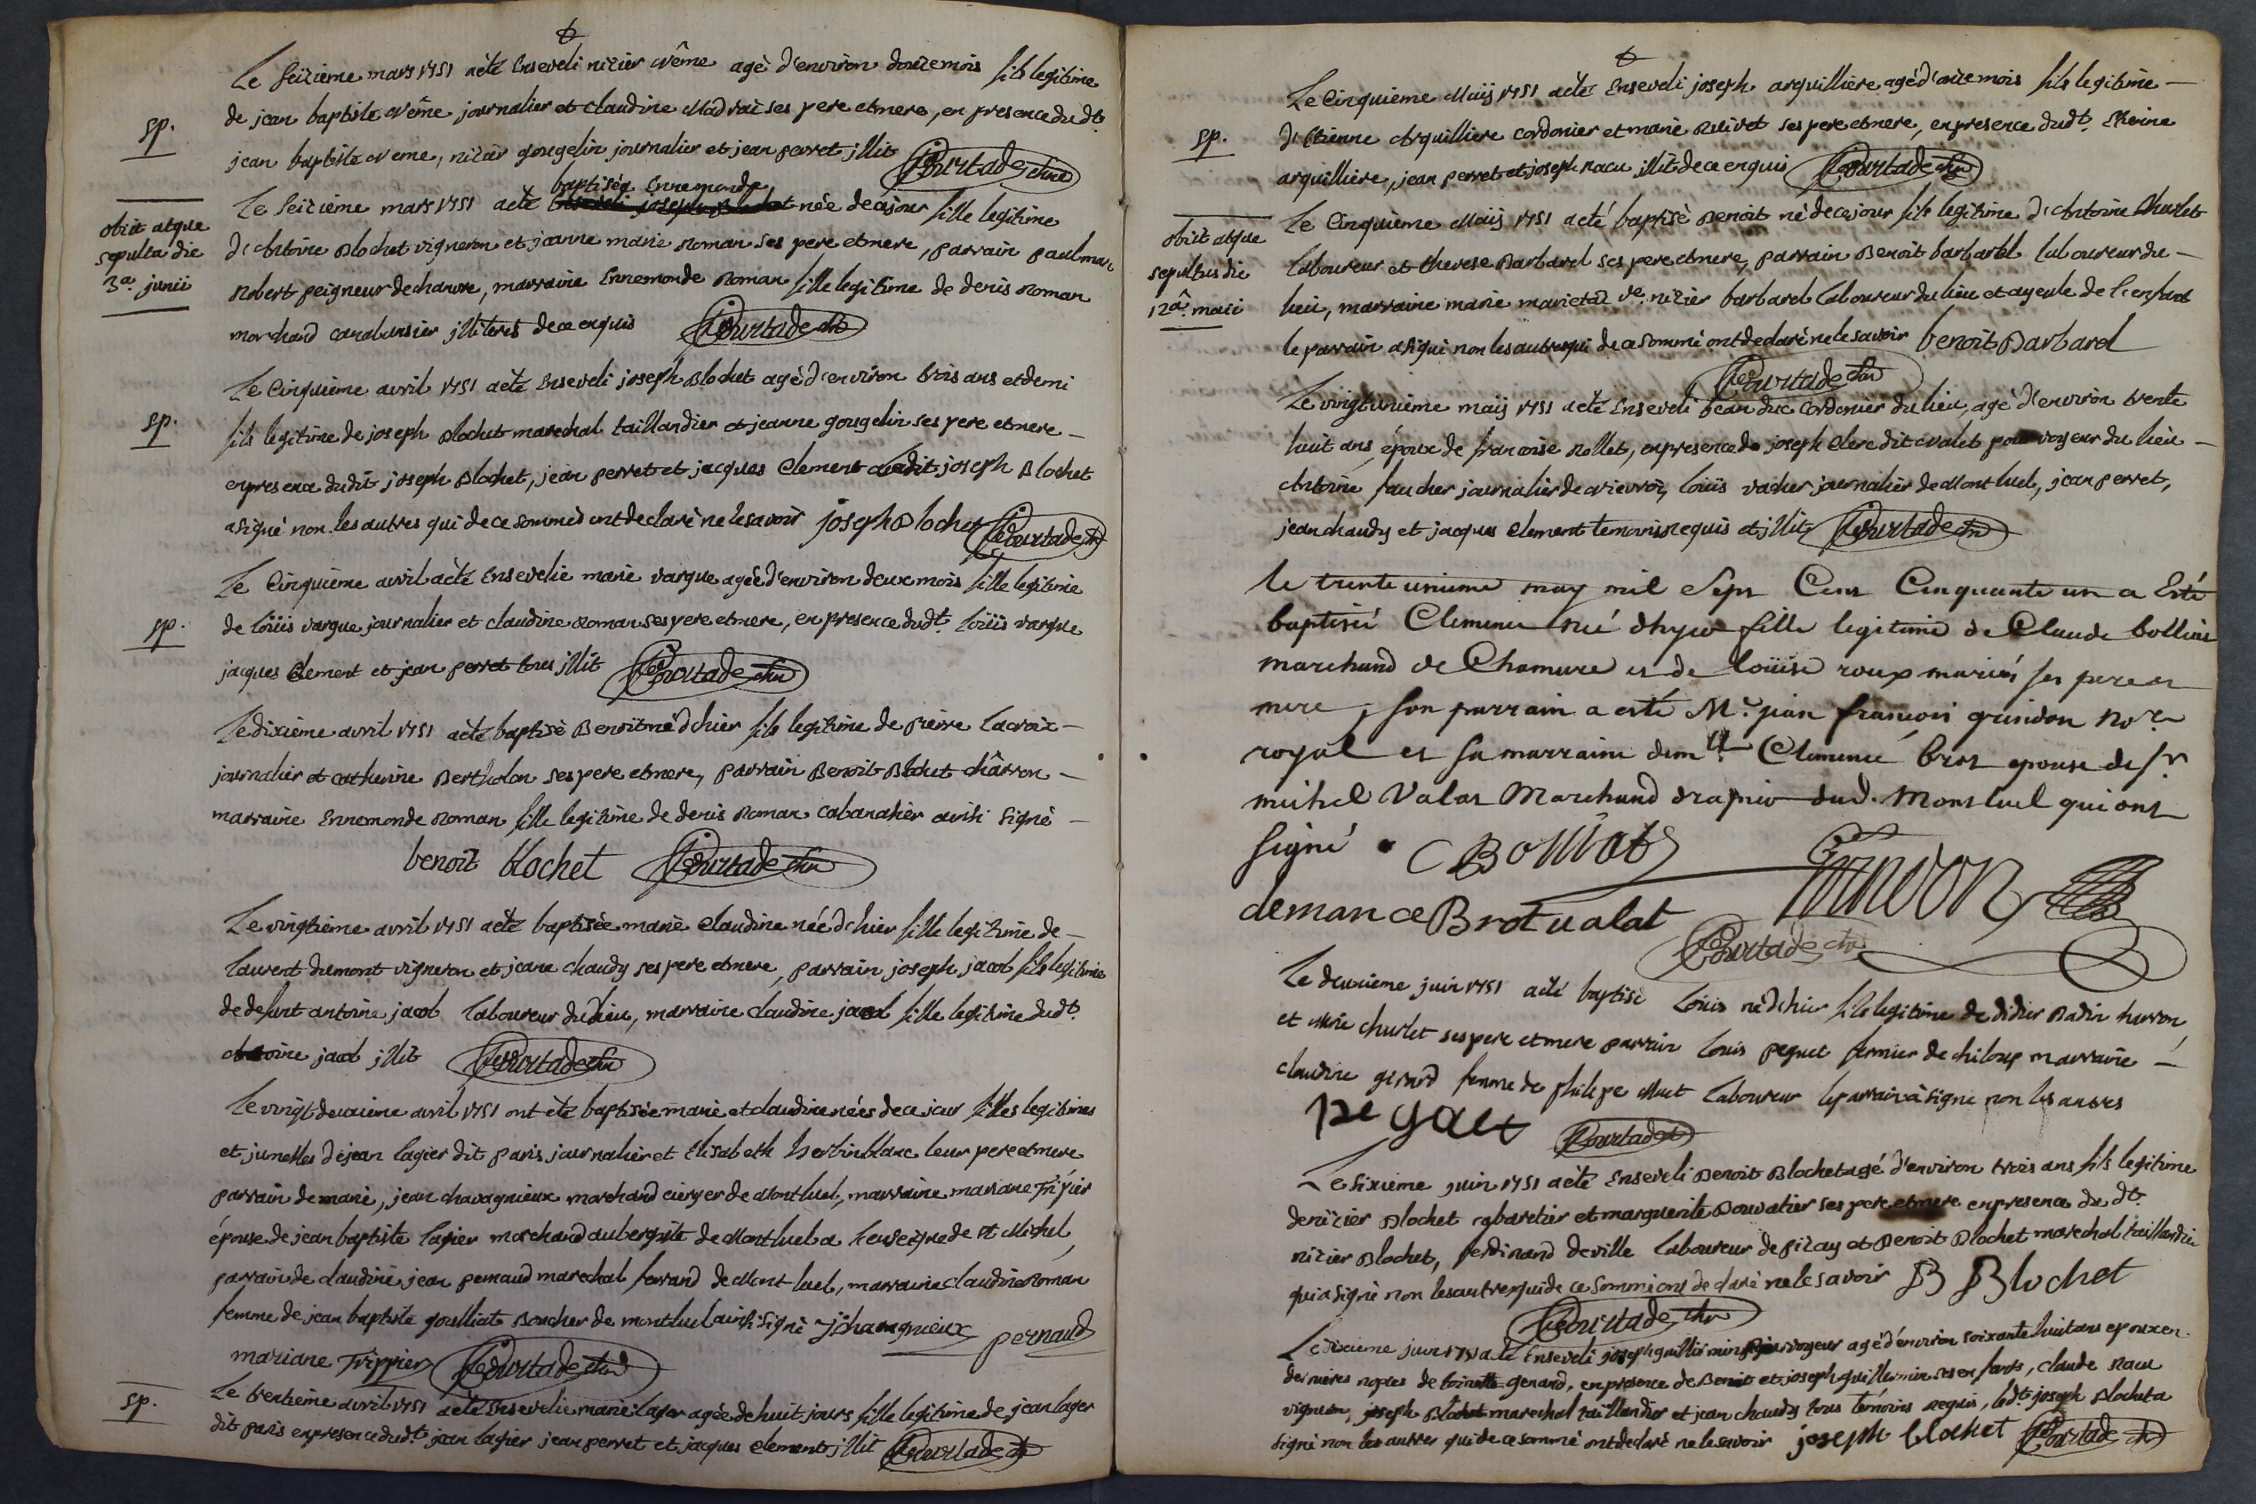 Le seizieme mars 1751 a été enseveli nizier agé d'environ douze mois fils legitime
de jean baptiste journalier et claudine ses pere et mere, en presence dudt
sp.
jean baptiste, nizier gougelin journalier et jean perret illit Courtade
baptisée Ennemonde
Le seizieme mars 1751 a été née de ce jour fille legitime
obiit atque
d'Antoine Blochet vigneron et jeanne marie Roman ses pere et mere, parrain paul
sepulta die
3a. junii
Robert peigneur de chanvre, marraine Ennemonde Roman fille legitime de denis Roman
marchand illiterés de ce enquis Courtade
Le Cinquieme avril 1751 a été Enseveli joseph Blochet agé d'environ trois ans et demi
sp.
fils legitime de joseph Blochet marechal taillandier et jeanne gougelin ses pere et mere
en presence dudit joseph Blochet, jean perret et jacques Clement ledit joseph Blochet
a signé non les autres qui de ce sommés ont declaré ne le savoir joseph Blochet Courtade
Le Cinquieme avril a été Ensevelie marie vargue agée d'environ deux mois fille legitime
sp.
de loüis vargue journalier et claudine Roman ses pere et mere, en presence dudt. Loüis vargue
jacques Clement et jean perret tous illit Courtade
Le dixieme avril 1751 a été baptisé Benoit né d'hier fils legitime de pierre Lacroix
journalier et catherine Bertholon ses pere et mere, parrain Benoit Blochet charron
marraine Ennemonde Roman fille legitime de denis Roman signé
benoit blochet Courtade
Le vingtieme avril 1751 a été baptisée marie claudine née d'hier fille legitime de
laurent dumont vigneron et jeane chaudy ses pere et mere, parrain joseph jacob fils legitime
de defunt antoine jacob laboureur du lieu, marraine claudine jacob fille legitime dudt.
antoine jacob illit Courtade
Le vingt deuxieme avril 1751 ont été baptisée marie et claudine nées de ce jour filles legitimes
et jumelles de jean lagier dit paris journalier et Elisabeth herbinblanc leur pere et mere
parrain de marie, jean chavagnieux marchand cierger de Montluel, marraine mariane Tripier
épouse de jean baptiste lagier marchand aubergiste de Montluel a l'enseigne de st Michel,
parrain de claudine jean pernaud marechal ferrand de Mont luel, marraine claudine Roman
femme de jean baptiste Boucher de montluel ainsi signé pernaud
mariane Trippier Courtade
sp.
Le trentieme avril 1751 a été Ensevelie marie lager agée de huit jours fille legitime de jean lager
dit paris en presence dudt. jean lagier jean perret et jacques clement illit Courtade
Le Cinquieme Maij 1751 a été Enseveli joseph arquilliere agé d'onze mois fils legitime
sp.
d'Etienne Arquilliere cordonier et marie ses pere et mere, en presence dudt. Etiene
arquilliere, jean perret et joseph racu illit de ce enquis Courtade
Le Cinquieme Maij 1751 a été baptisé Benoit né de ce jour fils legitime d'Antoine Churlet
obiit atque
laboureur et therese Barbarel ses pere et mere, parrain Benoit barbarel laboureur du
sepultus die
12a. maii
lieu, marraine marie ve. nizier barbarel laboureur du lieu et ayeule de l'enfant
le parrain a signé non les autres qui de ce sommé ont declaré ne le savoir benoit Barbarel
Courtade
Le vingtunieme maij 1751 a été Enseveli jean duc Cordonier du lieu, agé d'environ trente
huit ans, époux de françoise Rollet, en presence de joseph Clere dit pourvoyeur du lieu
Antoine faucher journalier, loüis vacher journalier de Montluel, jean perret,
jean chaudy et jacques clement temoins requis et illit Courtade
le trente unieme may mil Sept Cens Cinquante un a Esté
baptisée Clemence née d'hyer fille legitime de Claude
marchand de Chanvre et de loüise roux mariés ses pere et
mere, son parrain a esté Mr. jean françois grindon nore.
royal et sa marraine demlle Clemence brot epouse de sr.
michel Valat Marchand drapier dud. Montluel qui ont
signé
Brot ualat
Courtade
Le deuxieme juin 1751 a été baptisé Louis né d'hier fils legitime de didier Badin
et Marie churlet ses pere et mere parrain Louis peguet fermier de chiloup marraine
claudine girard femme de philipe laboureur le parrain a signé non les autres
Courtade
Le sixieme juin 1751 a été Enseveli Benoit Blochet agé d'environ trois ans fils legitime
de nizier Blochet cabaretier et marguerite ses pere et mere en presence du dt.
nizier Blochet, ferdinand deville laboureur de pizay et Benoit Blochet marechal taillandier
qui a signé non les autres qui de ce sommé ont declaré ne le savoir B Blochet
Courtade
Le dixieme juin 1751 a été Enseveli joseph guillermin pourvoyeur agé d'environ soixante huit ans epoux en
dernieres noces de girard, en presence de Benoit et joseph guillermin ses enfants, claude Racu
vigneron, joseph Blochet marechal taillandier et jean chaudy tous témoins requis, ledt. joseph Blochet a
signé non les autres qui de ce sommé ont declaré ne le savoir joseph blochet Courtade